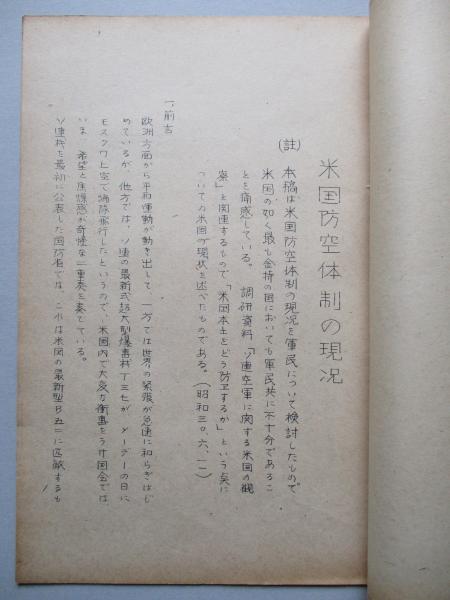 米国防空体制の現況
(註) 本稿は米国防空体制の現況を軍民について検討したもので
米国の如く最も金持の国においても軍民共に不十分であるこ
とを痛感している。 調研資料「ソ連空軍に関する米国の観
察」と関連するもので、「米国本土をどう防卫するか」という点に
ついての米国の現状を述べたものである。(昭和三〇、六、一一)
一、前言
欧洲方面から平和運動が動き出して、一方では世界の緊張が急速に和らぎはじ
めているが、他方では、ソ連の最新式超大型爆撃机T三七が、メーデーの日に
モスクワ上空で編隊飛行したというので、米国内で大変な衝撃をうけ国会では
いま、希望と焦燥感が奇怪な二重奏を奏でている。
ソ連机を最初に公表した国防省では、これは米国の最新型B五二に匹敵するも